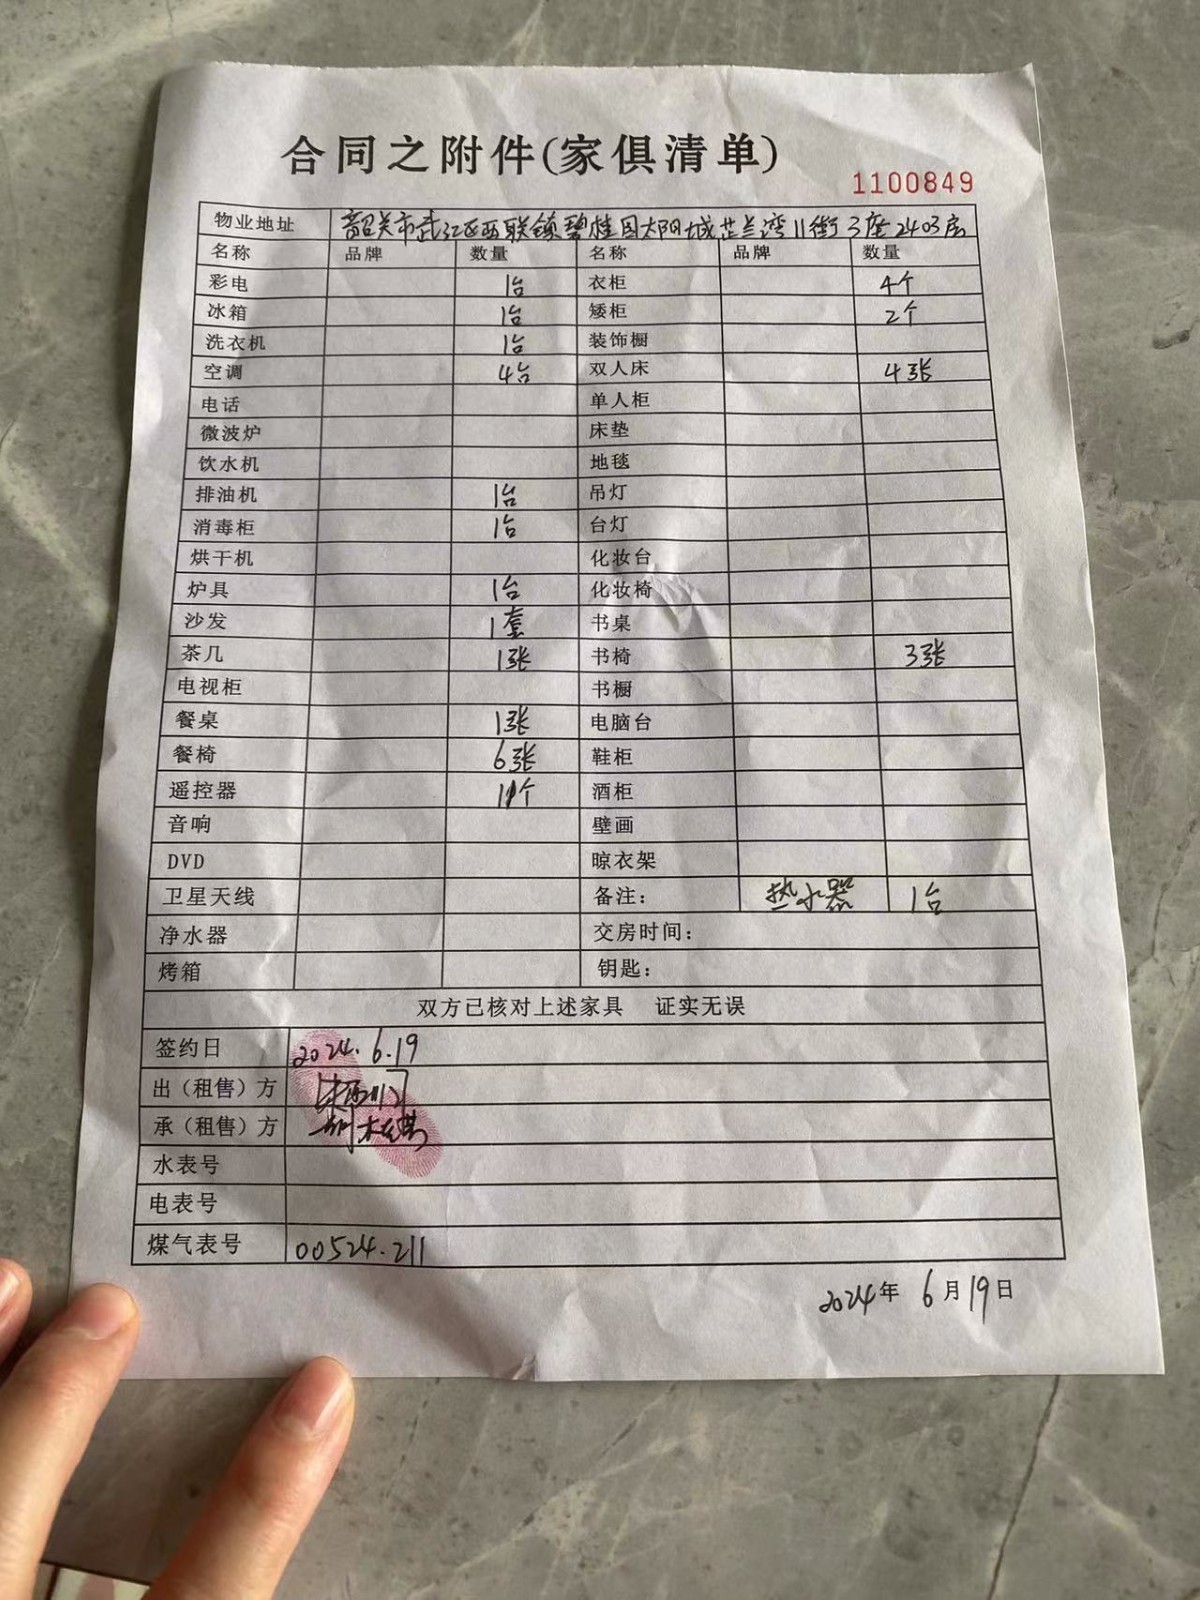 合同之附件(家俱清单)
1100849
物业地址 韶关市武江区西联镇碧桂园太阳城芷兰湾11街3座2403房
名称 品牌 数量 名称 品牌 数量
彩电 1台 衣柜 4个
冰箱 1台 矮柜 2个
洗衣机 1台 装饰橱
空调 4台 双人床 4张
电话 单人柜
微波炉 床垫
饮水机 地毯
排油机 1台 吊灯
消毒柜 1台 台灯
烘干机 化妆台
炉具 1台 化妆椅
沙发 1套 书桌
茶几 1张 书椅 3张
电视柜 书橱
餐桌 1张 电脑台
餐椅 6张 鞋柜
遥控器 个 酒柜
音响 壁画
DVD 晾衣架
卫星天线 备注: 热水器 1台
净水器 交房时间:
烤箱 钥匙:
双方已核对上述家具 证实无误
签约日 2024.6.19
出(租售)方
承(租售)方
水表号
电表号
煤气表号 00524.211
2024年 6月19日